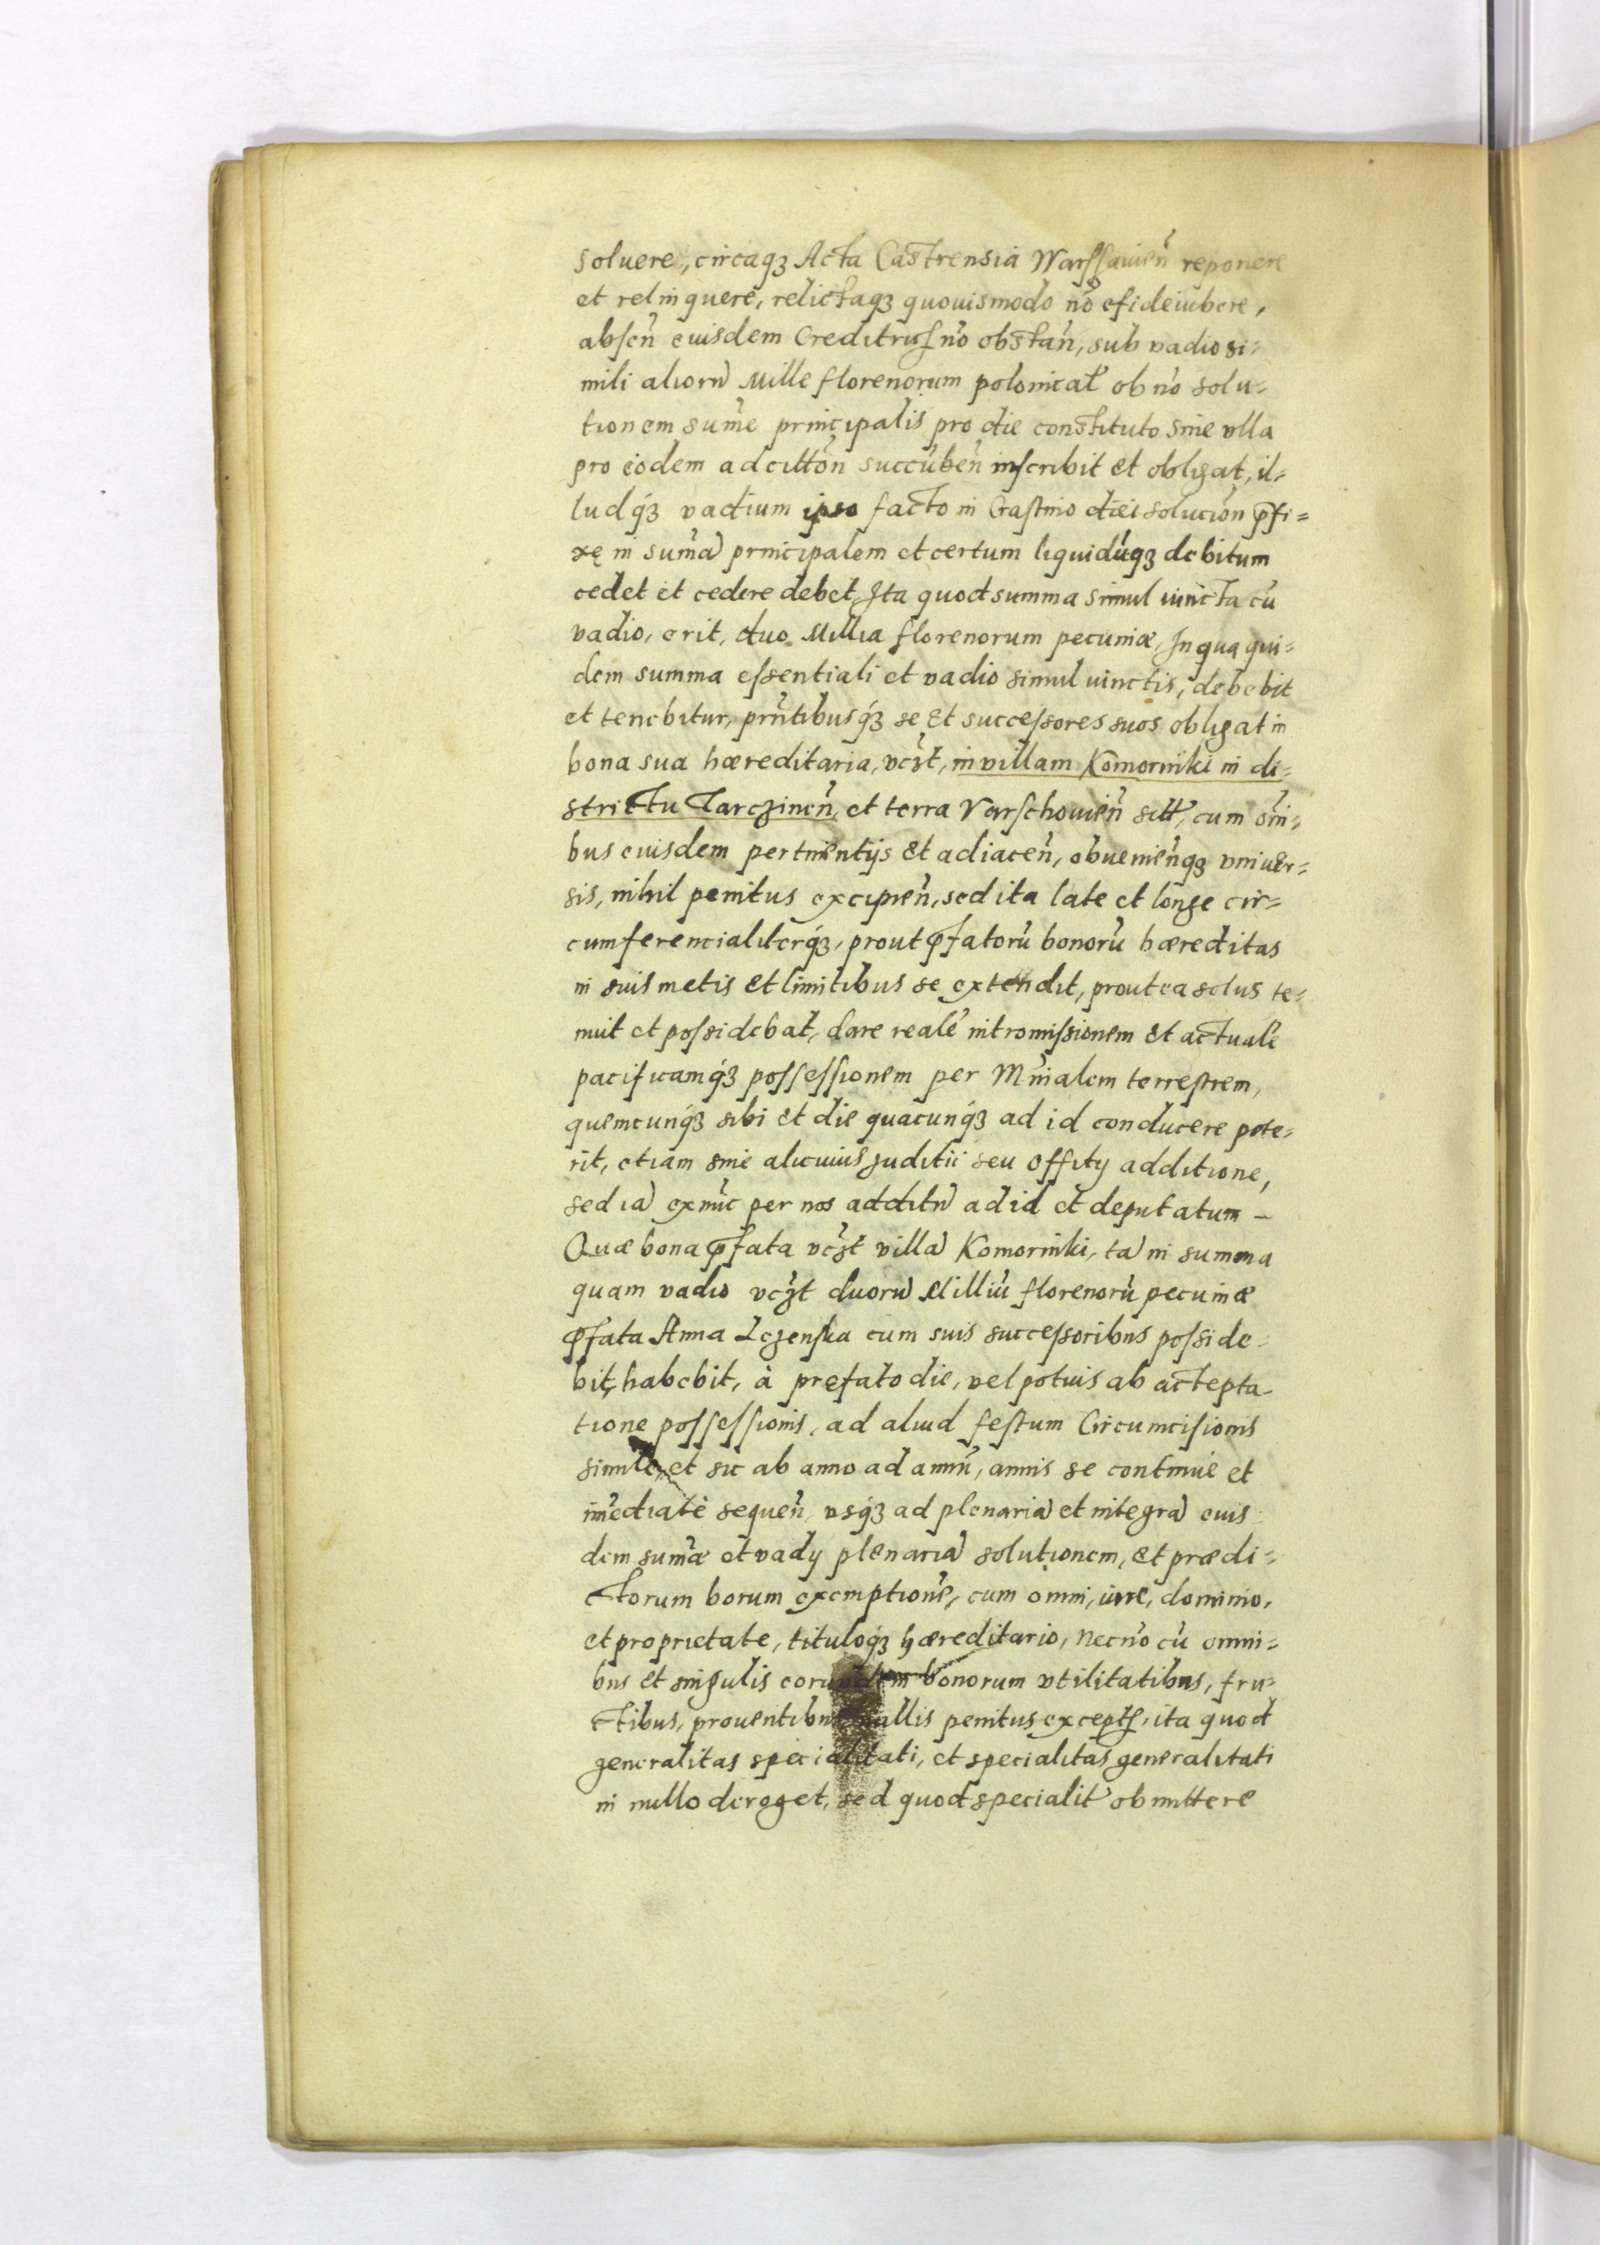 soluere, circaqȝ Acta Castrensia Warssauień reponere
et relinquere, relictaqȝ quouismodo nō efideiubere,
abseń eiusdem Creditrus nō obstań, sub vadio si=
mili aliorū Mille florenorum polonical' ob nō solu=
tionem sum̄e principalis pro die constituto sine vlla
pro eodem ad cittoń succubeń inscribit et obligat, il=
lud qȝ vadium ipso facto in Crastino diei solucioń p̄fi=
xę in sum̄ā principalem et certum liquidūqȝ debitum
cedet et cedere debet, Ita quod summa simul iuncta cū
vadio, erit, duo Millia florenorum pecuniæ, In qua qui=
dem summa essentiali et vadio simul iunctis, debebit
et tenebitur, prn̄tibusqȝ se et successores suos obligat in
bona sua hæreditaria, vcȝt, in villam Komorniki in di=
strictu Tarczineń, et terra Varschouień sitt, cum om̄i=
bus eiusdem pertinentijs et adiaceń, obuenieńqȝ vniuer=
sis, nihil penitus excipień, sed ita late et longe cir=
cumferencialiterqȝ, prout p̄fatorū bonorū hæreditas
in suis metis et limitibus se extendit, prout ea solus te=
nuit et possidebat, dare realē intromissionem et actualē
pacificamqȝ possessionem per Mn̄ialem terrestrem,
quemcunqȝ sibi et die quacunqȝ ad id conducere pote=
rit, etiam sine alicuius Juditii seu offity additione,
sed iā exnūc per nos additū ad id et deputatum –
Quæ bona p̄fata vcȝt villā Komorniki, tā in summa
quam vadio vcȝt duorū Milliū florenorū pecuniæ
p̄fata Anna Lczenska cum suis successoribus posside=
bit, habebit, à prefato die, vel potius ab acτepta
tione possessionis, ad aliud festum Circumcisionis
simile, et sic ab anno ad annū, annis se continuè et
im̄ediatè sequeń, vsqȝ ad plenariā et integrā eius=
dem sum̄æ et vady plenariā solutionem, et prædi=
ctorum borum exemptionē, cum omni, iure, dominio,
et proprietate, tituloqȝ hæreditario, necnō cū omni=
bus et singulis eorundem bonorum vtilitatibus, fru=
ctibus, prouentibus nullis penitus exceptis, ita quod
generalitas specialitati, et specialitas generalitati
in nullo deroget, sed quod specialit' obmittere